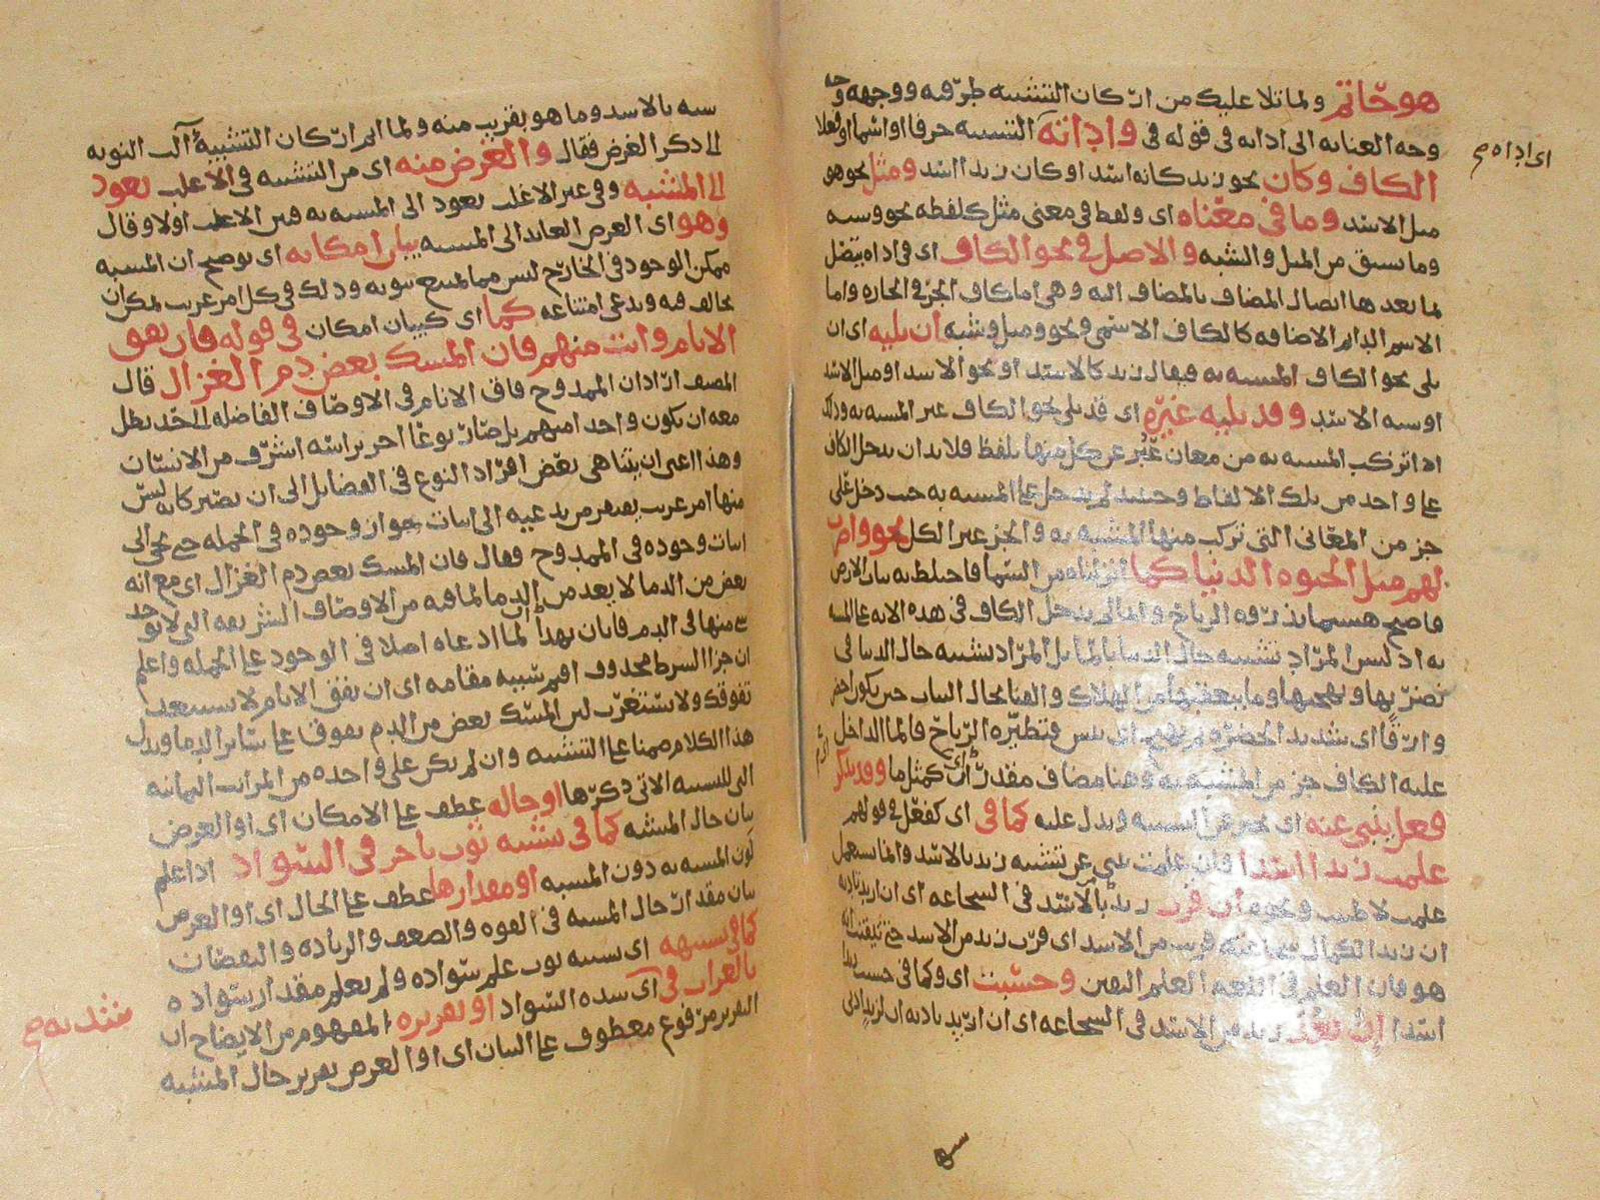 هو حاتم ولما تلا عليك من اركان التشبيه طرفيه ووجهه
وجه العنايه الى اداته في قوله في واداته التشبيه حرفا او اسما او فعلا
اى اداه
الكاف وكان نحو زيد كانه اسد او كان زيدا اسد ومثل نحو هو
مثل الاسد وما في معناه اى ولفظ في معنى مثل كلفظه نحو وشبه
وما سبق من المثل والشبه والاصل في نحو الكاف اى في اداه يتصل
بما بعدها اتصال المضاف بالمضاف اليه وهى اما كاف الجر في الجاره واما
الاسم الدايم الاضافه كالكاف الاسمى ونحو ومثل وشبه ان يليه اى ان
يلى نحو الكاف المشبه به فيقال زيد كالاسد او نحو الاسد او مثل الاسد
او شبه الاسد وقد يليه غيره اى قد يلى نحو الكاف غير المشبه به وذلك
اذا تركب المشبه به من معان عبر عن كل منها بلفظ فلا بد ان يدخل الكاف
على واحد من تلك الالفاظ وحينئذ لم يدخل على المشبه به حيث دخل على
جز من المعانى التى تركب منها المشبه به والجز غير الكل نحو واضرب
لهم مثل الحيوه الدنيا كما انزلناه من السما فاختلط به نبات الارض
فاصبح هشيما تذروه الرياح والتالى يدخل الكاف في هذه الايه على المشبه
به اذ ليس المراد تشبيه حال الدنيا بالما بل المراد تشبيه حال الدنيا في
نضرتها وبهجتها وما يتعقبها من الهلاك والفنا بحال النبات حين يكون اخضر
وارقا اى شديد الخضره ثم يهيج اى ييبس فتطيره الرياح فالما الداخل
عليه الكاف جز من المشبه به وهنا مضاف مقدر اى كمثل ما وقد يذكر
فعل ينبى عنه اى يخبر عن التشبيه ويدل عليه كما في اى كفعل في قولهم
علمت زيدا اسدا فان علمت ينبى عن تشبيه زيد بالاسد وانما يستعمل
ان زيدا لكمال شجاعته قريب من الاسد اى قرب زيد من الاسد حتى تيقنت انه
هو فان العلم في اللغه العلم اليقين وحسبت اى وكما في حسبت زيدا
اسدا ان بعد زيد من الاسد في الشجاعه اى ان اريد بادبه ان لزيد ادنى
شبه بالاسد وما هو بقريب منه ولما اتم اركان التشبيه آلت النوبه
الى ذكر الغرض فقال والغرض منه اى من التشبيه في الاغلب يعود
الى المشبه وفي غير الاغلب يعود الى المشبه به فبين الاغلب اولا وقال
وهو اى الغرض العايد الى المشبه بيان امكانه اى توضيح ان المشبه
ممكن الوجود في الخارج ليس مما يمتنع ثبوته وذلك في كل امر غريب يمكن ان
يخالف فيه ويدعى امتناعه كما اى كبيان امكان في قوله فان تفق
الانام وانت منهم فان المسك بعض دم الغزال قال
المصنف اراد ان الممدوح فاق الانام في الاوصاف الفاضله الى حد بطل
معه ان يكون واحدا منهم بل صار نوعا اخر براسه اشرف من الانسان
وهذا اعنى ان يتناهى بعض افراد النوع في الفضايل الى ان يصير كانه ليس
منها امر غريب يفتقر من يدعيه الى اثبات جواز وجوده في الجمله حتى يجى الى
اثبات وجوده في الممدوح فقال فان المسك بعض دم الغزال اى مع انه
بعض من الدما لا يعد من الدما لما فيه من الاوصاف الشريفه التى لا يوجد
شى منها في الدم فابان بهذا ان لما ادعاه اصلا في الوجود على الجمله واعلم
ان جزا الشرط محذوف اقيم شبيه مقامه اى ان تفق الانام لا يستبعد
تفوقك ولا يستغرب لان المسك بعض من الدم يفوق على ساير الدما ويدل
هذا الكلام ضمنا على التشبيه وان لم يكن على واحده من المراتب الثمانيه
التى للتشبيه الاتى ذكرها او حاله عطف على الامكان اى او الغرض
بيان حال المشبه كما في تشبيه ثوب باخر في السواد اذا علم
لون المشبه به دون المشبه او مقدارها عطف على الحال اى او الغرض
بيان مقدار حال المشبه في القوه والضعف والزياده والنقصان
كما في تشبيهه اى تشبيه ثوب علم سواده ولم يعلم مقدار سواده
بالغراب في اى شده السواد او تقريره المفهوم من الايضاح ان
التقرير مرفوع معطوف على البيان اى او الغرض تقرير حال المشبه